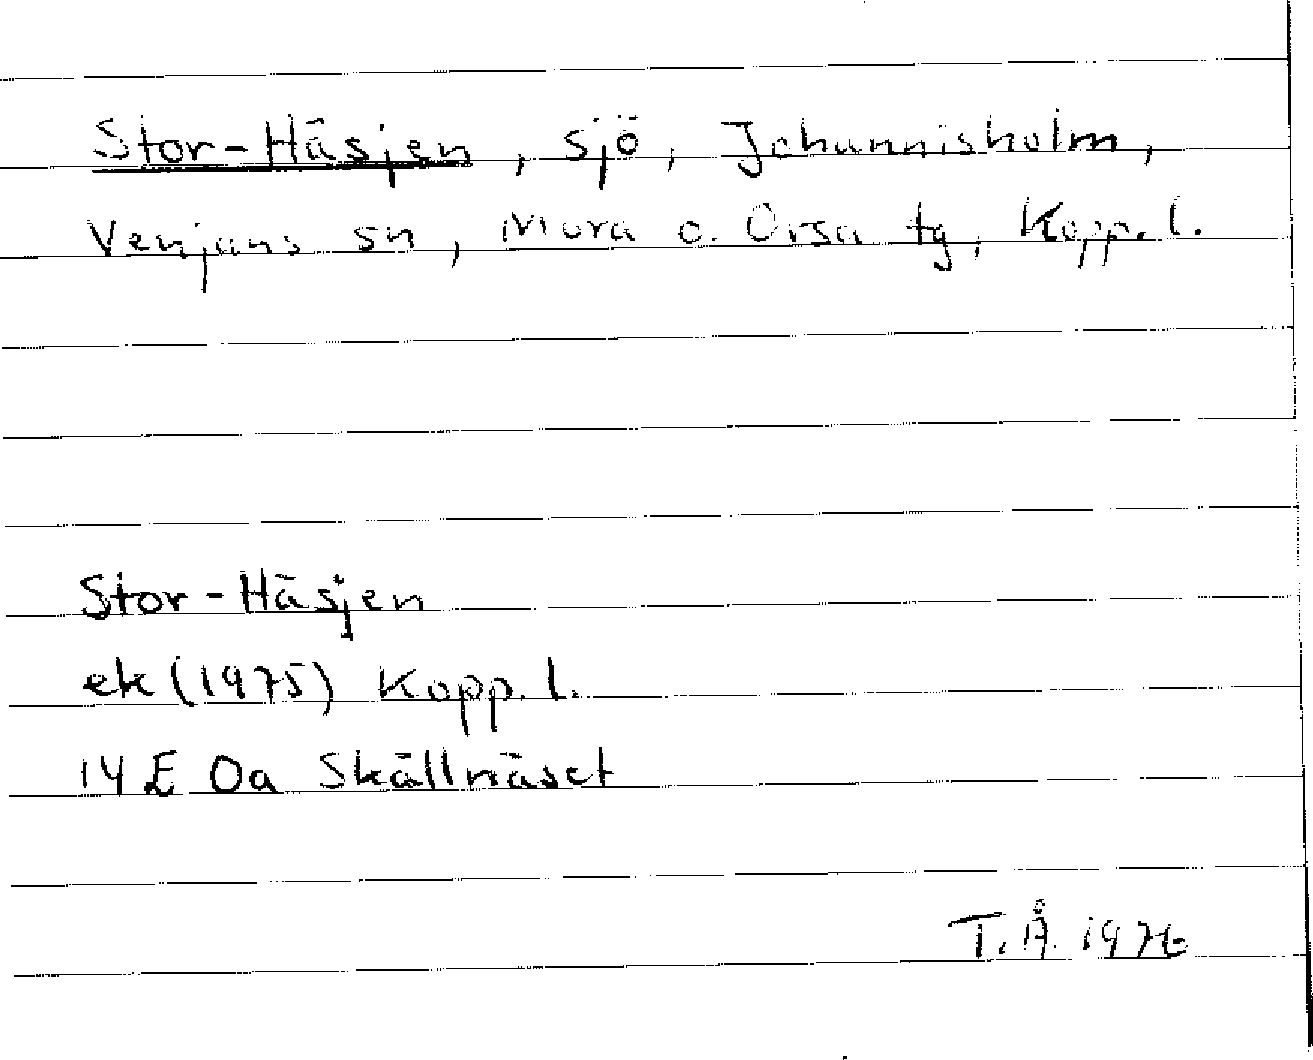 Stor-Häsjen, sjö, Johannisholm,
Venjans sn, Mora o. Orsa tg, Kopp. l.
Stor-Häsjen
ek (1975) Kopp. l.
14 E 0a Skållnäset
T. Å. 1976